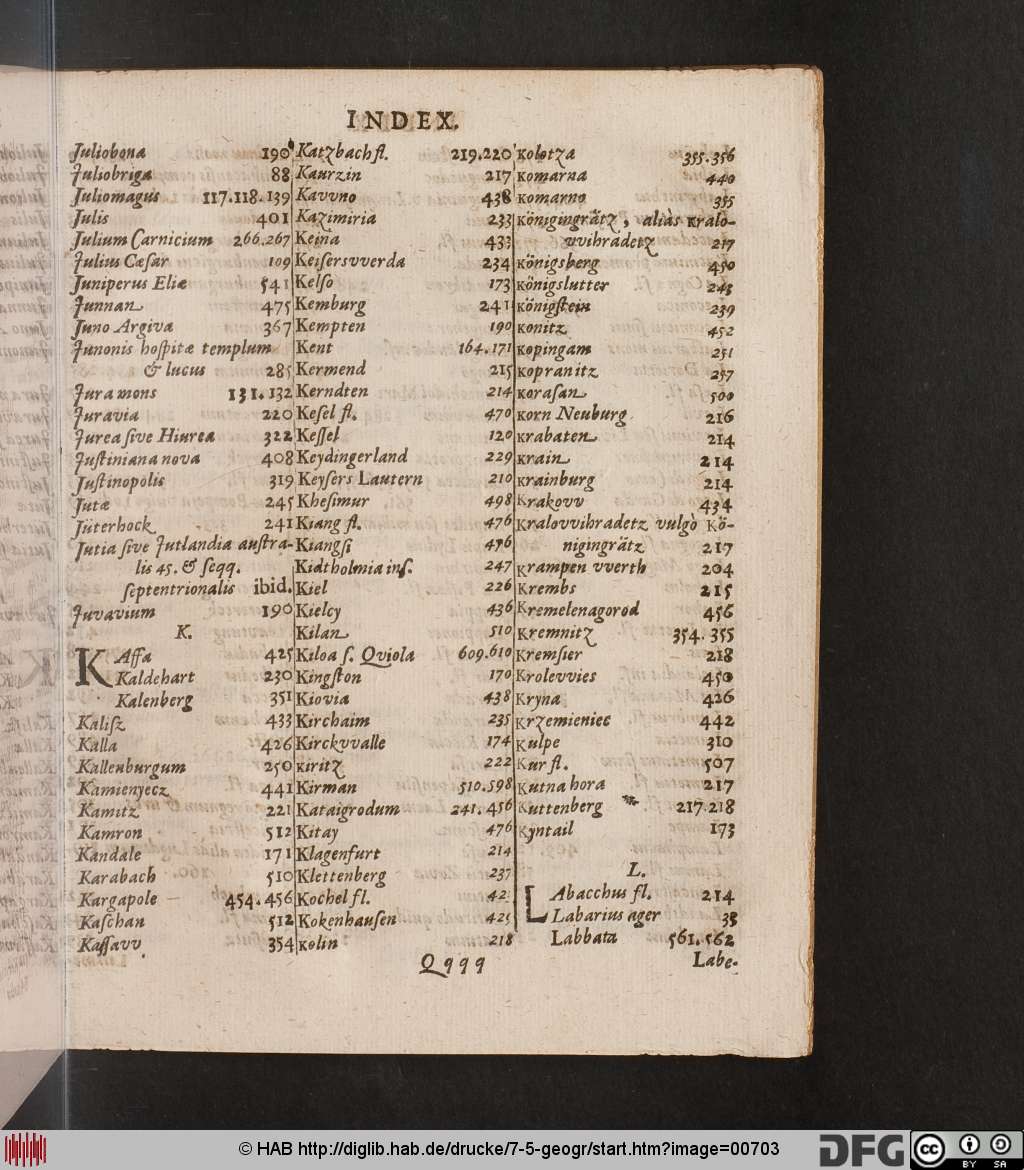 INDEX.
Juliobona 190
Juliobriga 88
Juliomagus 117.118.139
Julis 401
Julium Carnicium 266.267
Julius Cæſar 109
Juniperus Eliæ 541
Junnan 475
Juno Argiva 367
Junonis hoſpitæ templum
& lucus 285
Jura mons 131.132
Juravia 220
Jurea ſive Hiurea 322
Juſtiniana nova 408
Juſtinopolis 319
Jutæ 245
Jüterhock 241
Jutia ſive Jutlandia auſtra-
lis 45. & ſeqq.
ſeptentrionalis ibid.
Juvavium 190
K.
KAffa 425
Kaldehart 230
Kalenberg 351
Kaliſz 433
Kalla 426
Kallenburgum 250
Kamienjecz 441
Kamitz 221
Kamron 512
Kandale 171
Karabach 510
Kargapole 454.456
Kaſchan 512
Kaſſavv 354
Katzbach fl. 219.220
Kaurzin 217
Kavvno 438
Kazimiria 233
Keina 433
Keiſersvverda 234
Kelſo 173
Kemburg 241
Kempten 190
Kent 164.171
Kermend 215
Kerndten 214
Keſel fl. 470
Keſſel 120
Keydingerland 229
Keyſers Lautern 210
Kheſimur 498
Kiang fl. 476
Kiangſi 476
Kidtholmia inſ. 247
Kiel 226
Kielcy 436
Kilan 510
Kiloa ſ. Qviola 609.610
Kingſton 170
Kiovia 438
Kirchaim 235
Kirckvvalle 174
Kiritz 222
Kirman 510.598
Kataigrodum 241.456
Kitay 476
Klagenfurt 214
Klettenberg 237
Kochel fl. 42
Kokenhauſen 425
Kolin 218
Kolotza 355.356
Komarna 440
Komarno 355
Königingrätz, aliàs Kralo-
vvihradetz 217
Königsberg 450
Königslutter 243
Königſtein 239
Konitz 452
Kopingam 251
Kopranitz 257
Koraſan 500
Korn Neuburg 216
Krabaten 214
Krain 214
Krainburg 214
Krakovv 434
Kralovvihradetz vulgò Kö-
nigingrätz 217
Krampen vverth 204
Krembs 215
Kremelenagorod 456
Kremnitz 354.355
Kremſier 218
Krolevvies 450
Kryna 426
Krzemieniec 442
Kulpe 310
Kur fl. 507
Kutna hora 217
Kuttenberg 217.218
Kyntail 173
L.
LAbacchus fl. 214
Labarius ager 38
Labbata 561.562
Qqqq Labe-
© HAB http://diglib.hab.de/drucke/7-5-geogr/start.htm?image=00703
DFG
cc BY SA